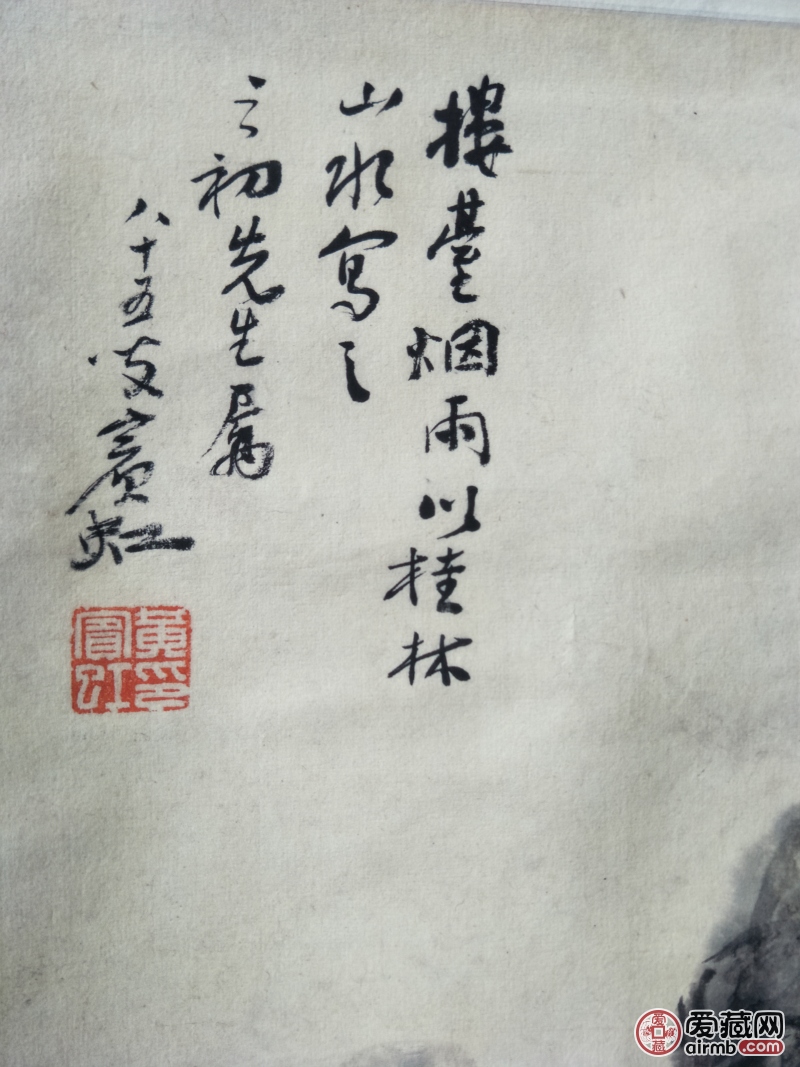 樓臺烟雨以桂林
山水寫之
之初先生属
八十五叟賓虹
黄賓虹印
爱藏网
airmb.com